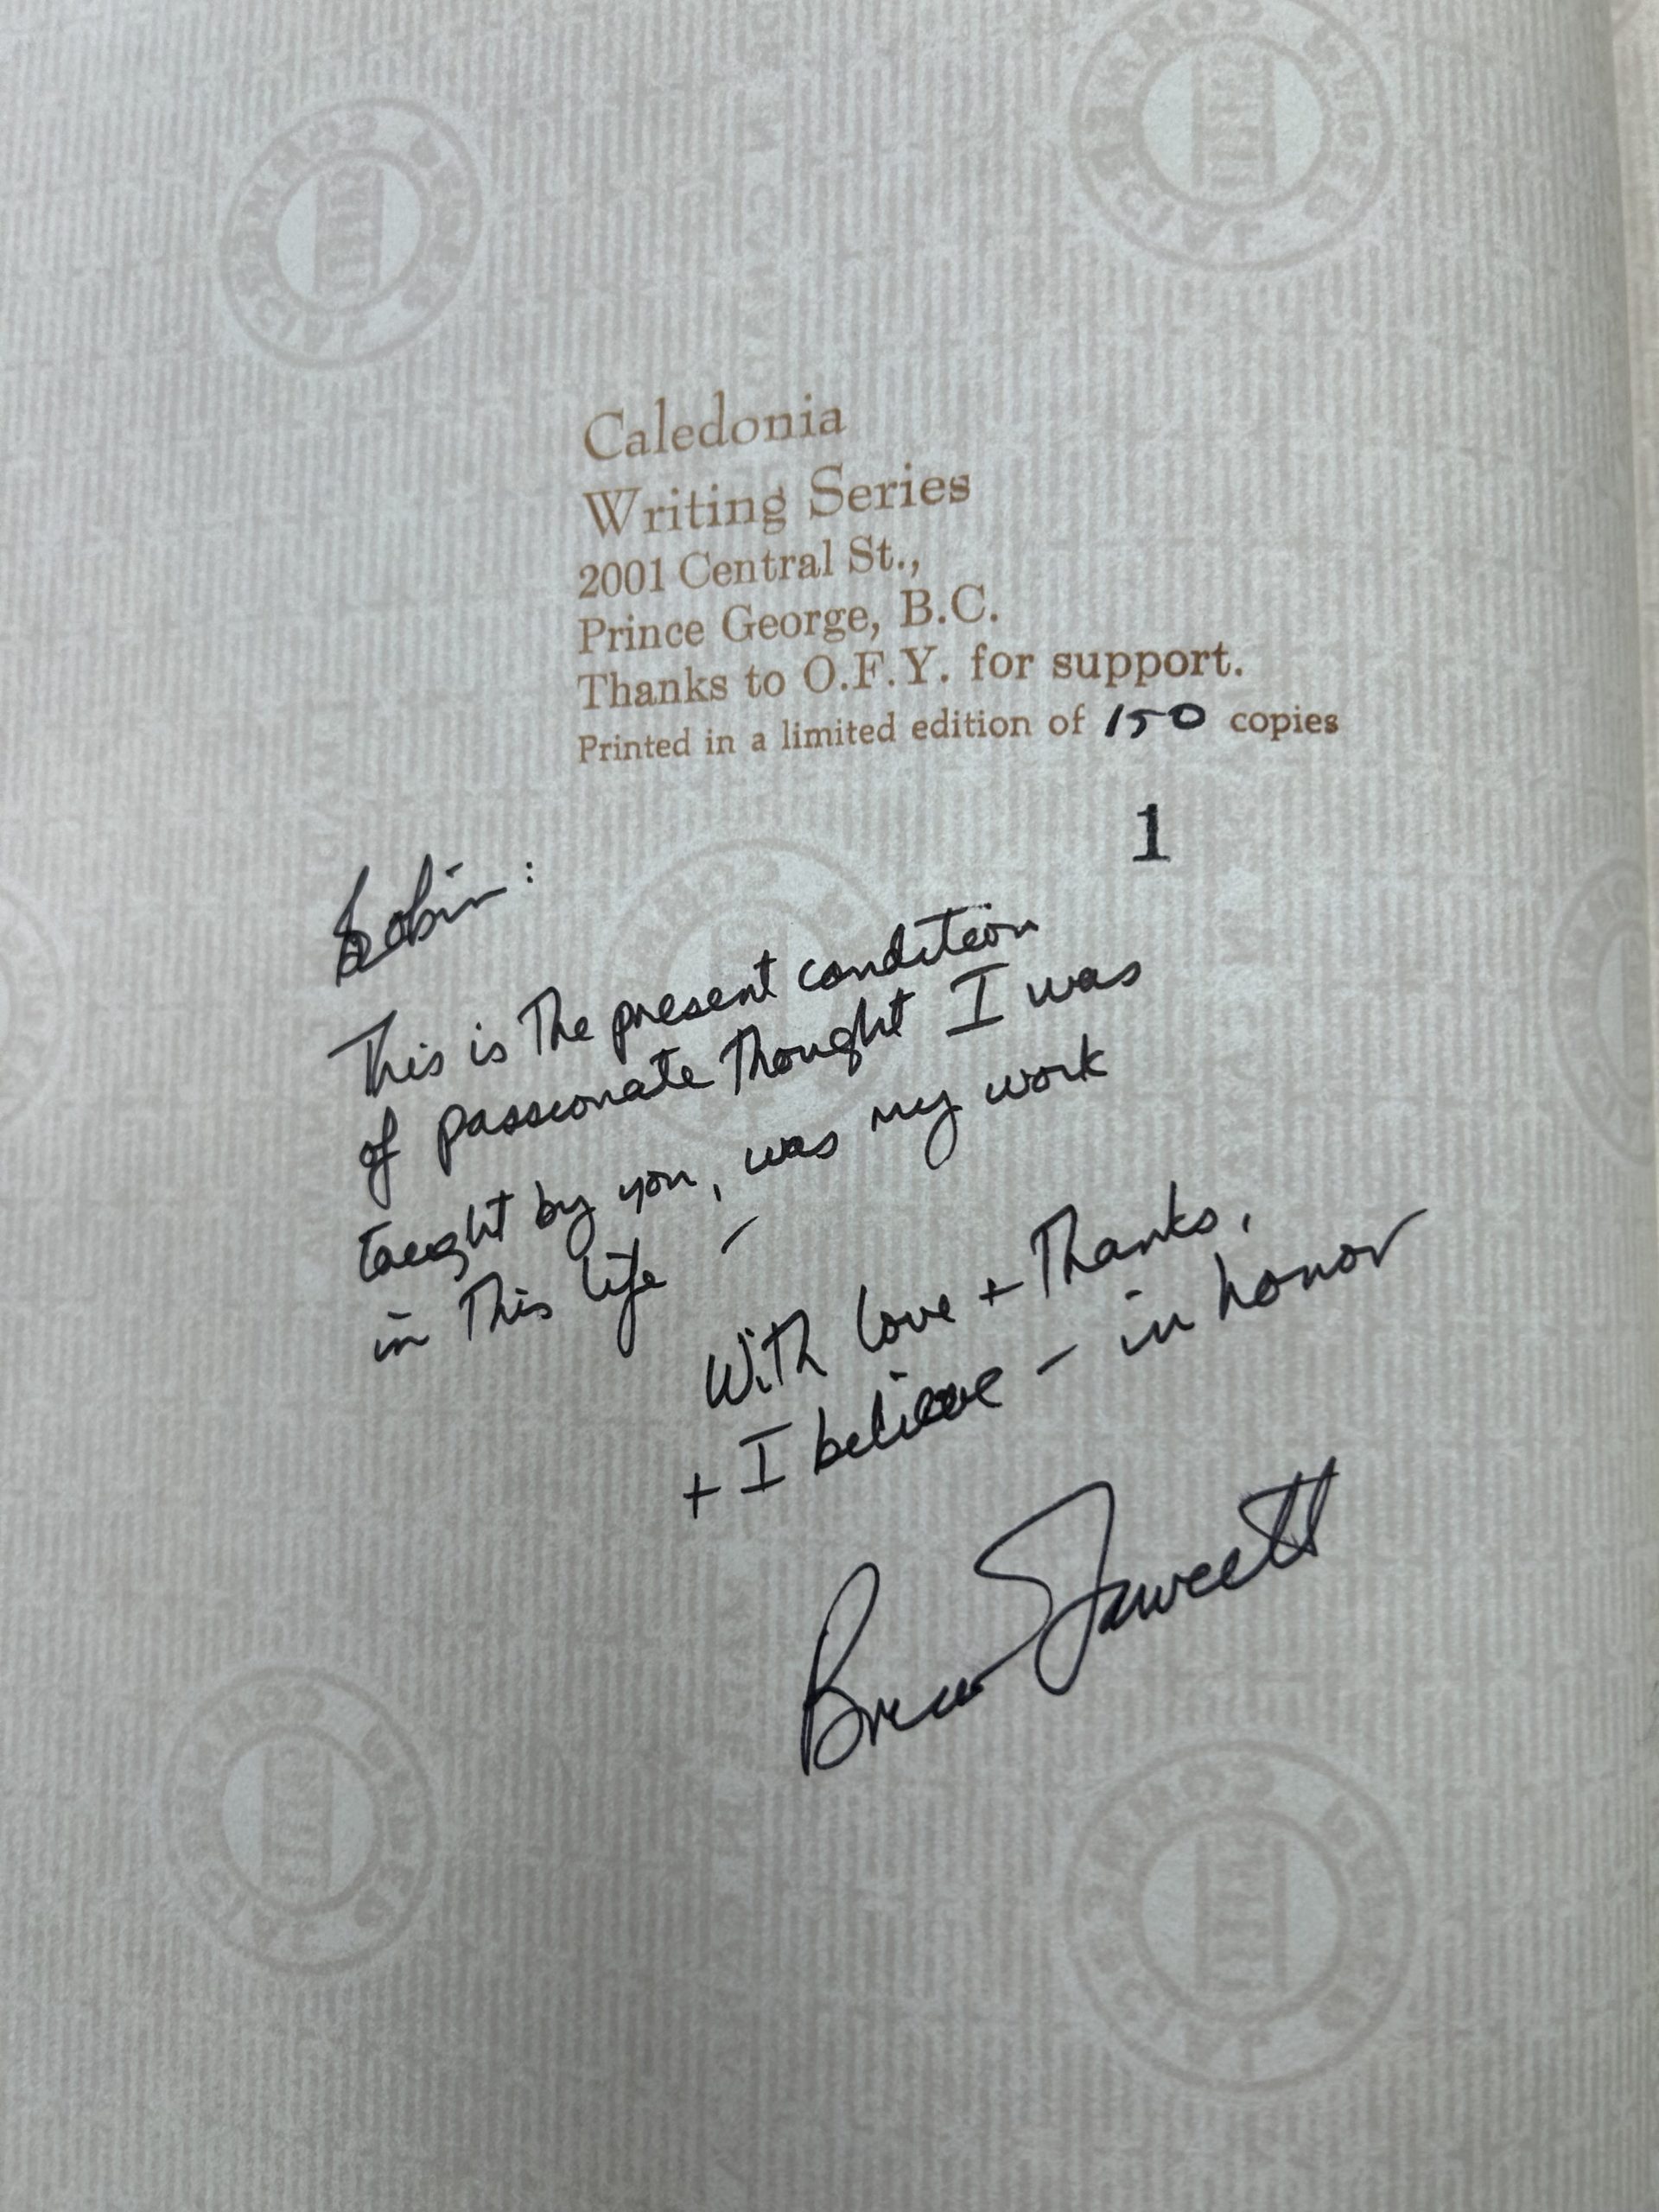 Caledonia
Writing Series
2001 Central St.,
Prince George, B.C.
Thanks to O.F.Y. for support.
Printed in a limited edition of 150 copies
1
Robin:
This is The present condition
of passionate Thought I was
taught by you, was my work
in This life —
With love + Thanks,
+ I believe — in honor
Brian Fawcett